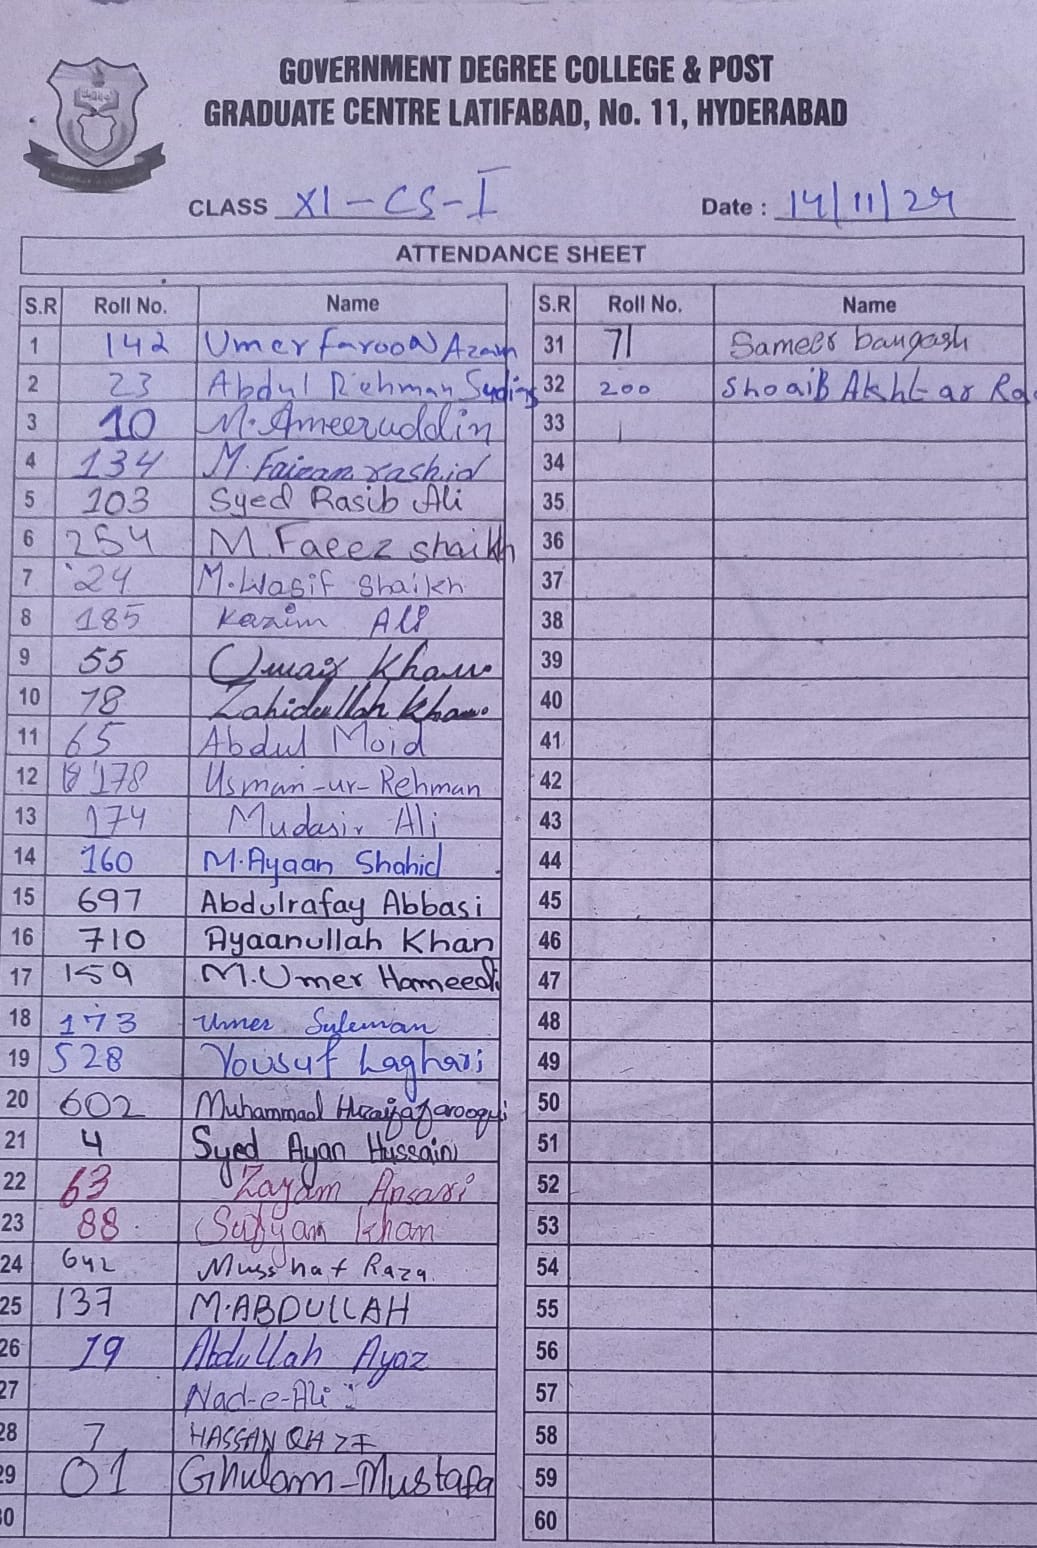 GOVERNMENT DEGREE COLLEGE & POST
GRADUATE CENTRE LATIFABAD, No. 11, HYDERABAD
CLASS XI-CS-I Date : 14/11/24
ATTENDANCE SHEET
S.R Roll No. Name
1 142 Umer Farooq Azam
2 23 Abdul Rehman
3 10 M.Ameeruddin
4 134 M.Faizan rashid
5 103 Syed Rasib Ali
6 254 M.Faeez shaikh
7 24 M.Wasif Shaikh
8 185 Kazim Ali
9 55 Omar Khan
10 78 Zahidullah Khan
11 65 Abdul Moid
12 178 Usman-ur-Rehman
13 174 Mudasir Ali
14 160 M.Ayaan Shahid
15 697 Abdulrafay Abbasi
16 710 Ayaanullah Khan
17 159 M.Umer Hameed
18 173 Umer Suleman
19 528 Yousuf Laghari
20 602 Muhammad Huzaifa farooqui
21 4 Syed Ayan Hussain
22 63 Zayam Ansari
23 88 Sufyan Khan
24 642 Raza
25 137 M.ABDULLAH
26 19 Abdullah Ayaz
27 Nad-e-Ali
28 7 HASSAN QAZI
29 01 Ghulam-Mustafa
30
S.R Roll No. Name
31 71 Sameer bangash
32 200 Shoaib Akhtar
33
34
35
36
37
38
39
40
41
42
43
44
45
46
47
48
49
50
51
52
53
54
55
56
57
58
59
60